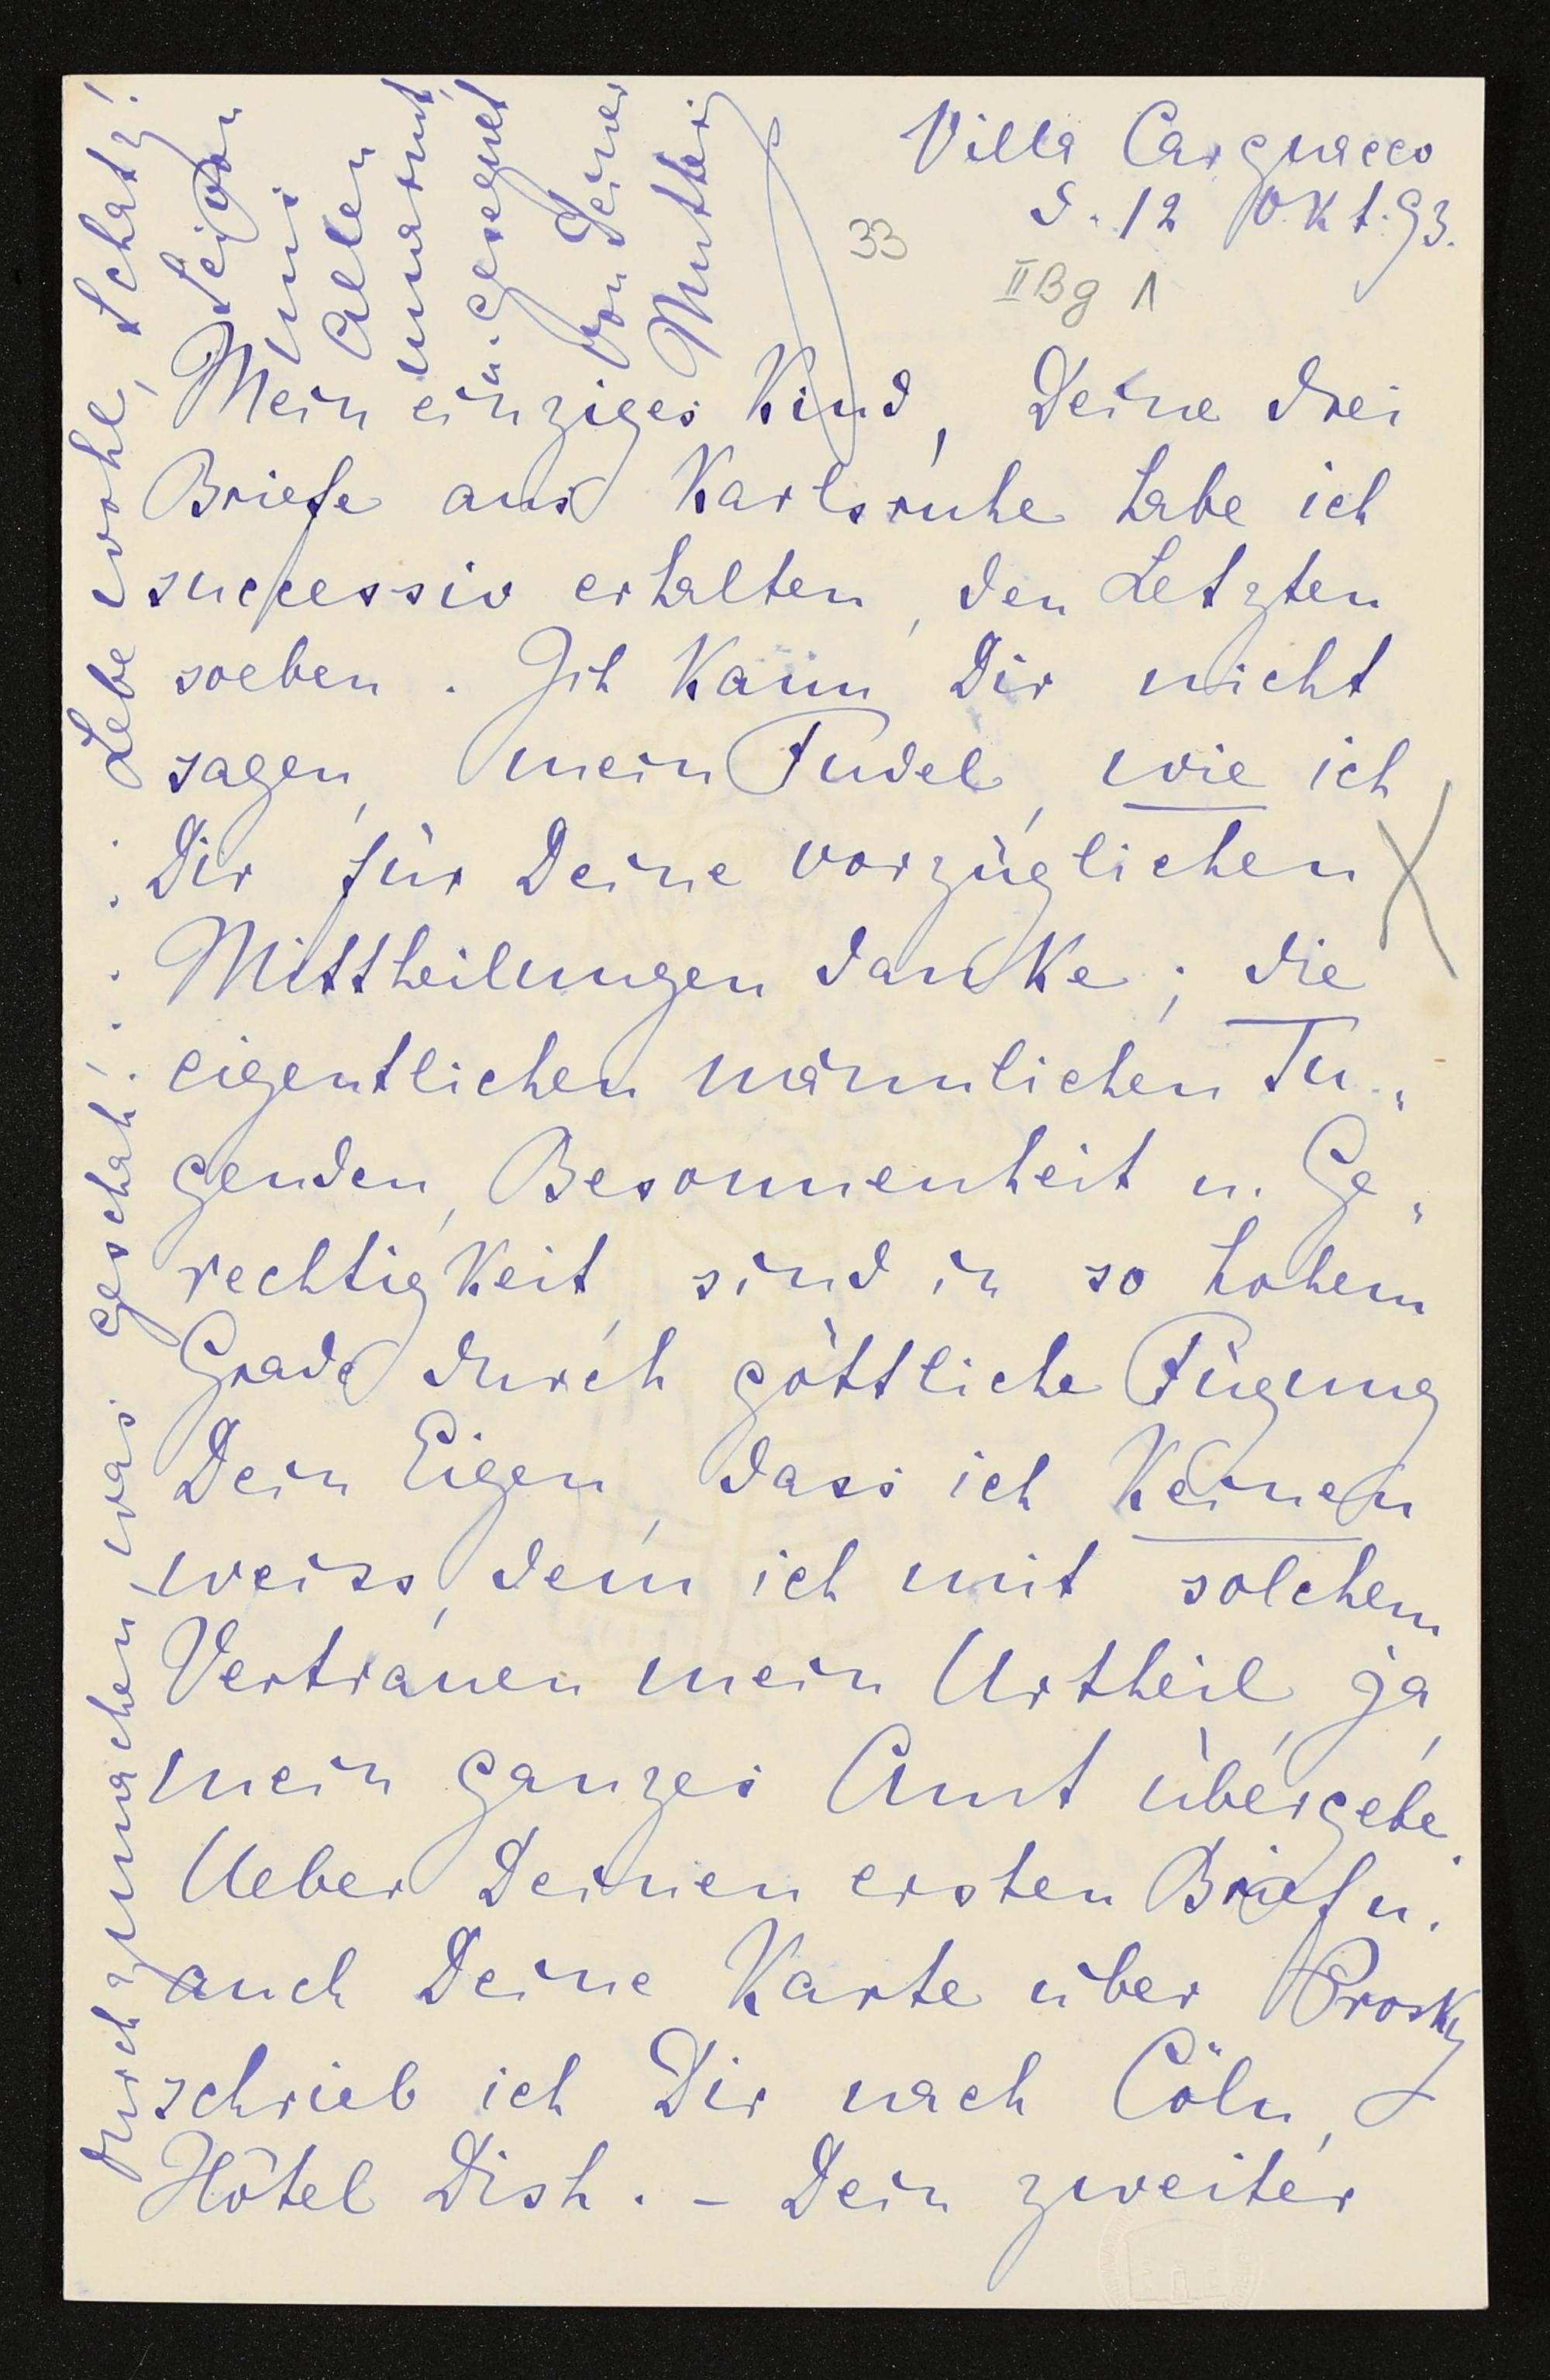 Villa Cargnacco
d. 12 Okt. 93.
33
II Bg 1
Mein einziges Kind, Deine drei
Briefe aus Karlsruhe habe ich
successiv erhalten, den Letzten
soeben. Ich kann Dir nicht
sagen, mein Fudel, wie ich
Dir für Deine vorzüglichen
Mittheilungen danke; die
eigentlichen männlichen Tu„
genden, Besonnenheit u. Ge„
rechtigkeit, sind in so hohem
Grade durch göttliche Fügung
Dein Eigen, dass ich Keinen
weiss, dem ich mit solchem
Vertrauen mein Urtheil, ja,
mein ganzes Amt übergebe.
Ueber Deinen ersten Brief u.
auch Deine Karte über Prosky
schrieb ich Dir nach Cöln,
Hôtel Dish. – Dein zweiter
durchzumachen, was geschah! . . . . . Lebe wohl, Schatz!
Sei von
uns
Allen
umarmt,
u. gesegnet
von Deiner
Mutter